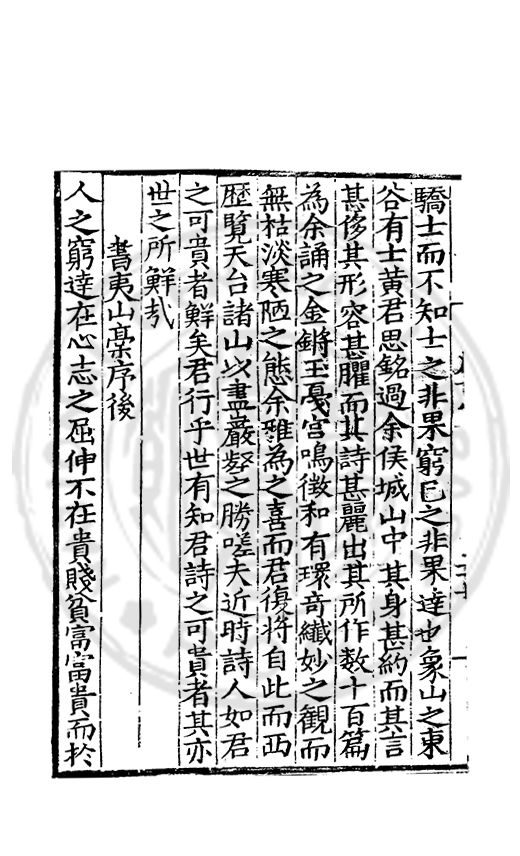 驕士而不知士之非果窮已之非果達也象山之東
谷有士黃君思銘過余侯城山中其身甚約而其言
甚侈其形容甚臞而其詩甚麗出其所作数十百篇
為余誦之金鏘玉戛宮鳴徵和有環奇纖妙之觀而
無枯淡寒陋之態余雅為之喜而君復将自此而西
歴覽天台諸山以盡嚴壑之勝嗟夫近時詩人如君
之可貴者鮮矣君行乎世有知君詩之可貴者其亦
世之所鮮㢤
書夷山稾序後
人之窮達在心志之屈伸不在貴賤貧富富貴而於